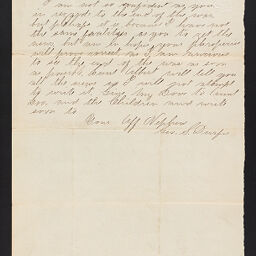 I am not so confident as you
in regard to the end of the war
but perhaps it is because I have not
the same facilities as you to get the
news but am in hopes your
will prove correct as I am anxious
to see the end of the war as soon
as possible Aunt will tell you
all the news so I will not attempt
to write it. Give my Love to Aunt
and the Children and write
soon to
Your Aff Nephew
Geo. S.